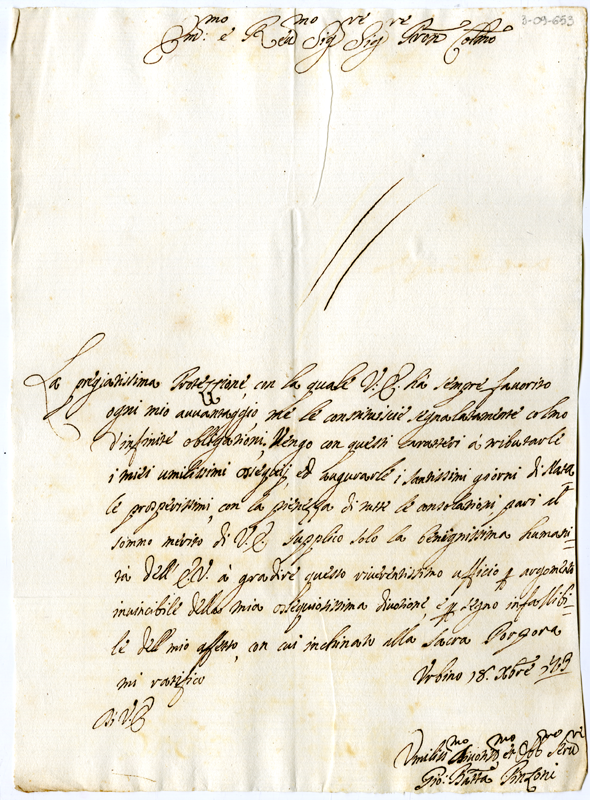 3-09-653
Em:mo e Reu:mo Sig:re Sig:re Pron: Colmo
La pregiatissima Protezzione, con la quale V.E. hà sempre favorito
ogni mio avvantaggio, mè le constituisce segnalatamente colmo
d'infinite obbligazioni, Vengo con questi caratteri à tributarle
i miei umilissimi ossequij, ed augurarle i santissimi giorni di Nata-
le prosperissimi, con la pienezza di tutte le consolazioni pari al
sommo merito di V.E. supplico solo la benignissima humani-
tà dell'E.V. à gradire questo riverentissimo ufficio p argomento
invincibile della mia ossequiosissima divozione, è p segno infallibi-
le dell mio affetto, con cui inchinato alla Sacra Porpora
mi ratifico
Urbino 18. Xbre
Di V.E.
Umiliss:mo Divotis:mo et Obb:mo Seru:ri
Gio: Batta Pinzoni